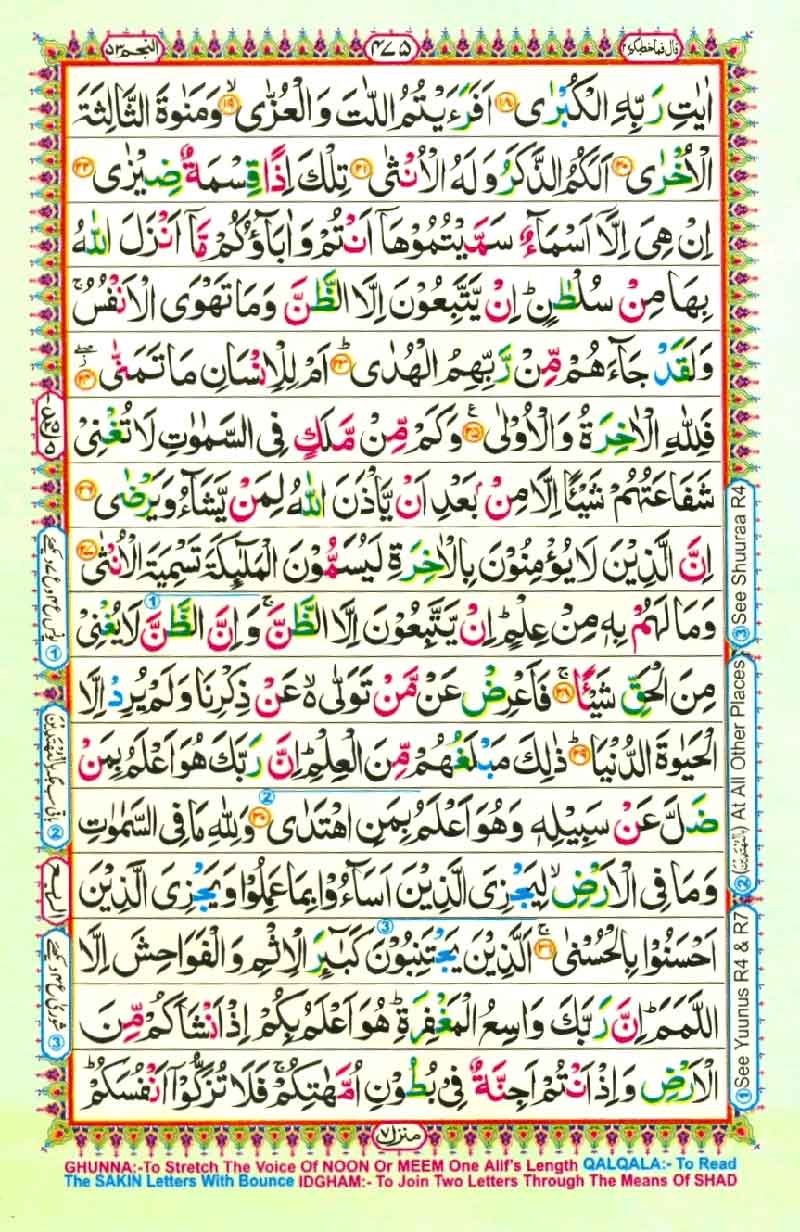 قال فما خطبكم ۲۷
۴۷۵
النجم ۵۳
اٰيٰتِ رَبِّهِ الْكُبْرٰى ۱۸ اَفَرَءَيْتُمُ اللّٰتَ وَالْعُزّٰىۙ ۱۹ وَمَنٰوةَ الثَّالِثَةَ
الْاُخْرٰى ۲۰ اَلَكُمُ الذَّكَرُ وَلَهُ الْاُنْثٰى ۲۱ تِلْكَ اِذًا قِسْمَةٌ ضِيْزٰى ۲۲
اِنْ هِىَ اِلَّاۤ اَسْمَآءٌ سَمَّيْتُمُوْهَاۤ اَنْتُمْ وَاٰبَآؤُكُمْ مَّاۤ اَنْزَلَ اللّٰهُ
بِهَا مِنْ سُلْطٰنٍؕ اِنْ يَّتَّبِعُوْنَ اِلَّا الظَّنَّ وَمَا تَهْوَى الْاَنْفُسُۚ
وَلَقَدْ جَآءَهُمْ مِّنْ رَّبِّهِمُ الْهُدٰىؕ ۲۳ اَمْ لِلْاِنْسَانِ مَا تَمَنّٰى ۲۴
فَلِلّٰهِ الْاٰخِرَةُ وَالْاُوْلٰى ۲۵ وَكَمْ مِّنْ مَّلَكٍ فِى السَّمٰوٰتِ لَا تُغْنِىْ
شَفَاعَتُهُمْ شَيْئًا اِلَّا مِنْۢ بَعْدِ اَنْ يَّاْذَنَ اللّٰهُ لِمَنْ يَّشَآءُ وَيَرْضٰى ۲۶
اِنَّ الَّذِيْنَ لَا يُؤْمِنُوْنَ بِالْاٰخِرَةِ لَيُسَمُّوْنَ الْمَلٰٓئِكَةَ تَسْمِيَةَ الْاُنْثٰى ۲۷
وَمَا لَهُمْ بِهٖ مِنْ عِلْمٍؕ اِنْ يَّتَّبِعُوْنَ اِلَّا الظَّنَّۚ وَاِنَّ الظَّنَّ لَا يُغْنِىْ
مِنَ الْحَقِّ شَيْئًاۚ ۲۸ فَاَعْرِضْ عَنْ مَّنْ تَوَلّٰى۬ۙ عَنْ ذِكْرِنَا وَلَمْ يُرِدْ اِلَّا
الْحَيٰوةَ الدُّنْيَاؕ ۲۹ ذٰلِكَ مَبْلَغُهُمْ مِّنَ الْعِلْمِؕ اِنَّ رَبَّكَ هُوَ اَعْلَمُ بِمَنْ
ضَلَّ عَنْ سَبِيْلِهٖ وَهُوَ اَعْلَمُ بِمَنِ اهْتَدٰى ۳۰ وَلِلّٰهِ مَا فِى السَّمٰوٰتِ
وَمَا فِى الْاَرْضِۙ لِيَجْزِىَ الَّذِيْنَ اَسَآءُوْا بِمَا عَمِلُوْا وَيَجْزِىَ الَّذِيْنَ
اَحْسَنُوْا بِالْحُسْنٰىۚ ۳۱ اَلَّذِيْنَ يَجْتَنِبُوْنَ كَبٰٓئِرَ الْاِثْمِ وَالْفَوَاحِشَ اِلَّا
اللَّمَمَؕ اِنَّ رَبَّكَ وَاسِعُ الْمَغْفِرَةِؕ هُوَ اَعْلَمُ بِكُمْ اِذْ اَنْشَاَكُمْ مِّنَ
الْاَرْضِ وَاِذْ اَنْتُمْ اَجِنَّةٌ فِىْ بُطُوْنِ اُمَّهٰتِكُمْۚ فَلَا تُزَكُّوْۤا اَنْفُسَكُمْؕ
① See Yuunus R4 & R7
② At All Other Places
③ See Shuuraa R4
منزل ۷
GHUNNA:-To Stretch The Voice Of NOON Or MEEM One Alif's Length QALQALA:- To Read
The SAKIN Letters With Bounce IDGHAM:- To Join Two Letters Through The Means Of SHAD